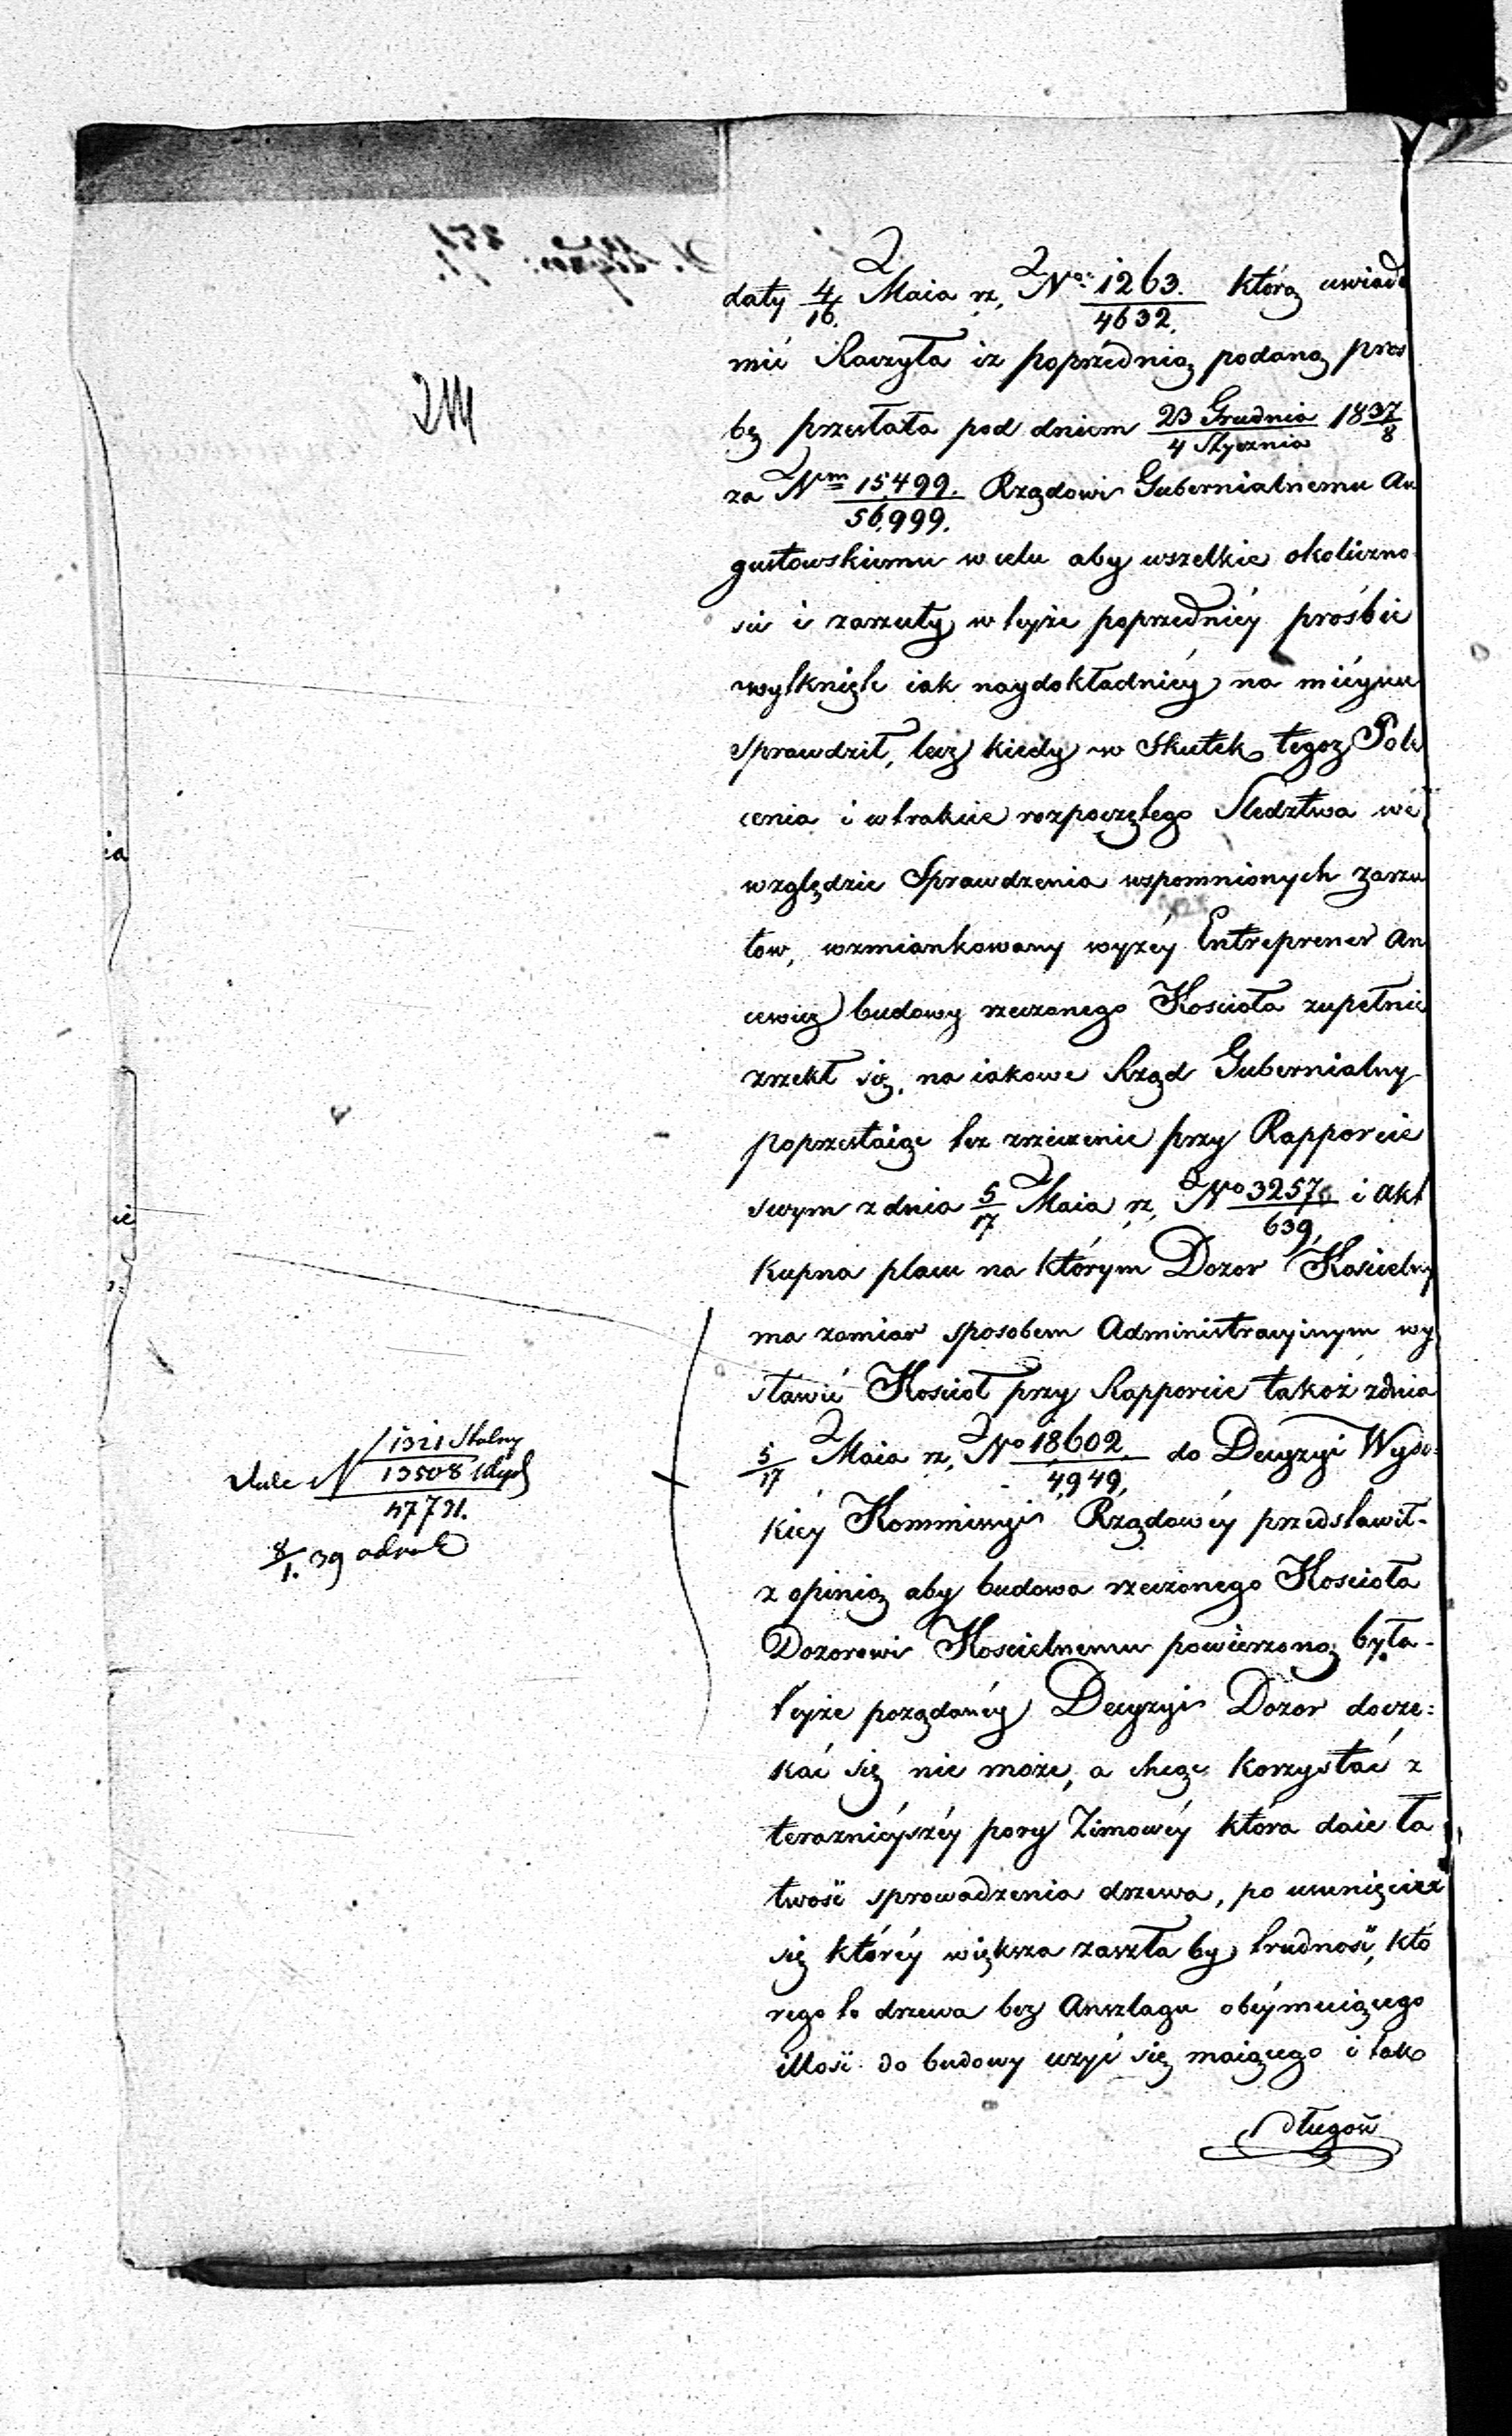 daty 4/16. Maia rz, No. 1263./4632. którą uwiado
mić Raczyła iż poprzednią podaną proś
bę przesłała pod dniem 23 Grudnia/4 Stycznia 1837/8
za Nm 15499./56,999. Rządowi Gubernialnemu Au
gustowskiemu w celu aby wszelkie okoliczno
ści i zarzuty w teyże poprzedniéy prośbie
wytknięte iak naydokładniéy na mieyscu
sprawdził, lecz kiedy w Skutek tegoz Pole
cenia i w trakcie rozpoczętego Sledztwa we
względzie Sprawdzenia wspomnionych zarzu
tow, wzmiankowany wyżéy Entreprener An
cewicz budowy rzeczonego Kościoła zupełnie
zrzekł się, na iakowe Rząd Gubernialny
poprzestaiąc też zrzeczenie przy Rapporcie
swym z dnia 5/17 Maia rz, No 32576/639, i akt
Kupna placu na którym Dozor Kościelny
ma zamiar sposobem Administracyinym wy
stawić Kościoł przy Rapporcie takoż z dnia
5/17 Maia rz, No 18602/4,949, do Decyzyi Wyso-
kiéy Kommissyi Rządowéy przedstawił-
z opinią aby budowa rzeczonego Kościoła
Dozorowi Kościelnemu powierzoną była-
teyże pożądanéy Decyzyi Dozor docze:
kać się nie może, a chcąc korzystać z
teraznieyszéy pory Zimowéy która daie ła
twość sprowadzenia drzewa, po usunięciu
się któréy większa zaszła by trudność, któ
rego to drzewa bez Anszlagu obeymuiącego
illość do budowy użyć się maiącego i tak
Długość
214
1321 Skalny
N 13508 Wyzn
47721.
8/1. 39